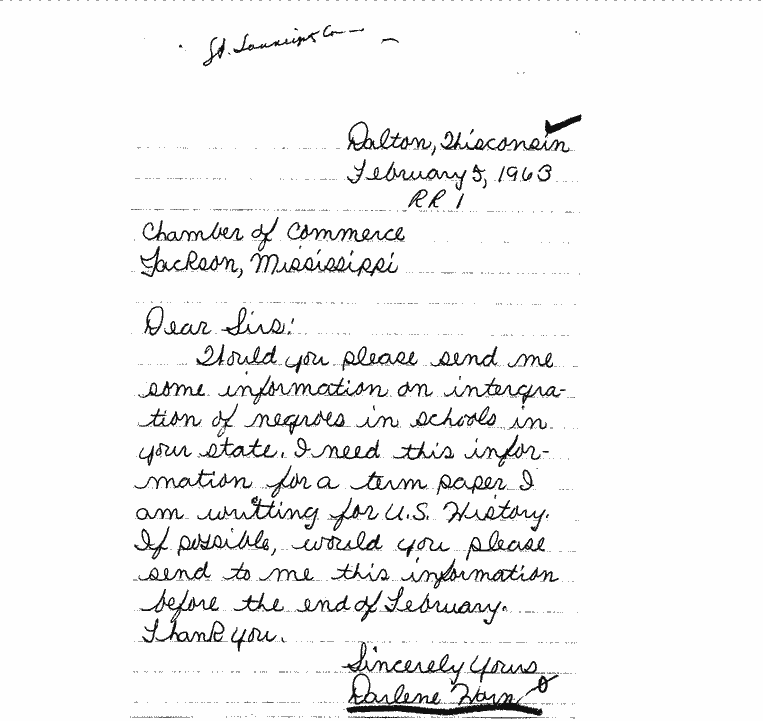 Dalton, Wisconsin
February 5, 1963
RR 1
Chamber of Commerce
Jackson, Mississippi
Dear Sirs:
Would you please send me
some information on intergra-
tion of negroes in schools in
your state. I need this infor-
mation for a term paper I
am writting for U.S. History.
If possible, would you please
send to me this information
before the end of February.
Thank you.
Sincerely Yours
Darlene